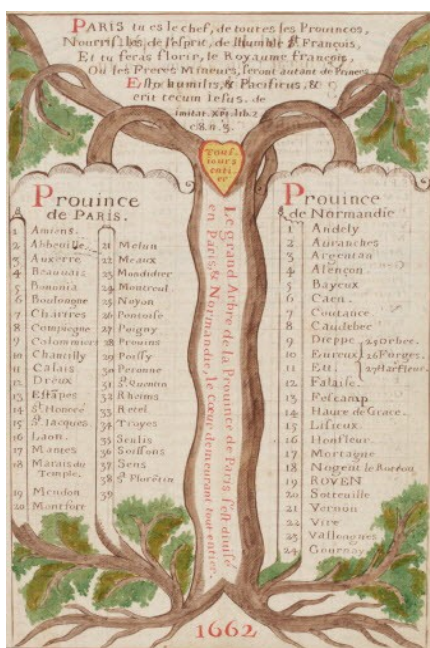 PARIS tu es le chef, de toutes ses Prouinces,
Nourris les de l'esprit, de l'humble St. François,
Et tu feras florir, le Royaume françois,
Ou ses Freres Mineurs, seront autant de Princes
Esto humilis, & Pacificus, &
erit tecum Iesus. de
imitat. xpi. lib. 2
c. 8. n. 3.
Tous
iours
enti
er
Prouince
de PARIS.
1 Amiens.
2 Abbeuille
3 Auxerre
4 Beauuais
5 Bononia
6 Boulongne
7 Chartres
8 Compiegne
9 Colommiers
10 Chantilly
11 Calais
12 Dreux
13 Estapes
14 St. Honoré
15 St. Jacques
16 Laon.
17 Mantes
18 Marais du
Temple.
19 Meudon
20 Montfort
21 Melun
22 Meaux
23 Mondidier
24 Montreul
25 Noyon
26 Pontoise
27 Peigny
28 Prouins
29 Poissy
30 Peronne
31 St. Quentin
32 Rheims
33 Retel
34 Troyes
35 Senlis
36 Soissons
37 Sens
38 St. Florētin
39
Le grand Arbre de la Prouince de Paris s'est diuisé
en Paris, & Normandie, le Cœur demeurant tout entier.
Prouince
de Normandie
1 Andely
2 Auranches
3 Argentan
4 Alençon
5 Bayeux
6 Caen.
7 Coutance
8 Caudebec
9 Dieppe 25 Orbec.
10 Eureux 26 Forges.
11 Eu. 27 Harfleur.
12 Falaise.
13 Fescamp
14 Haure de Grace.
15 Lisieux
16 Honfleur
17 Mortagne
18 Nogent le Rotrou
19 ROVEN
20 Sotteuille
21 Vernon
22 Vire
23 Vallongnes
24 Gournay
1662